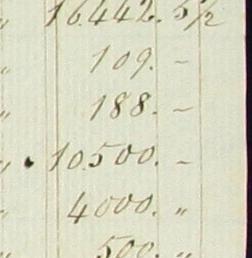 " 16.442. 5½
" 109. –
" 188. –
" • 10.500. –
" 4000. "
" 500. "